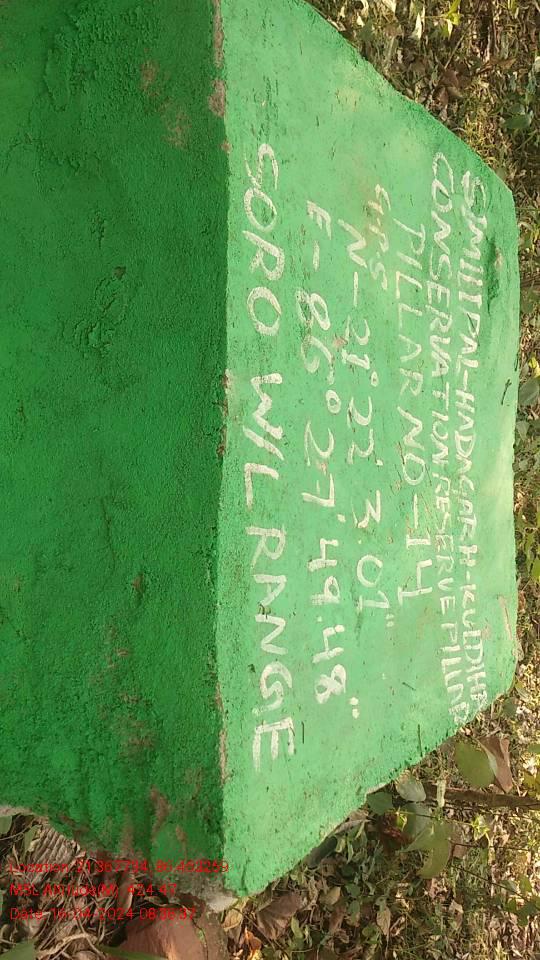 SIMILIPAL-HADAGARH-KULDIHA
CONSERVATION RESERVE PILLAR
PILLAR NO-14
GPS
N-21°22'3.07"
E-86°027'.49.48"
SORO W/L RANGE
Location: 21.367734,86.463259
MSL Altitude(M): 424.47
Date: 16-04-2024 08:36:37